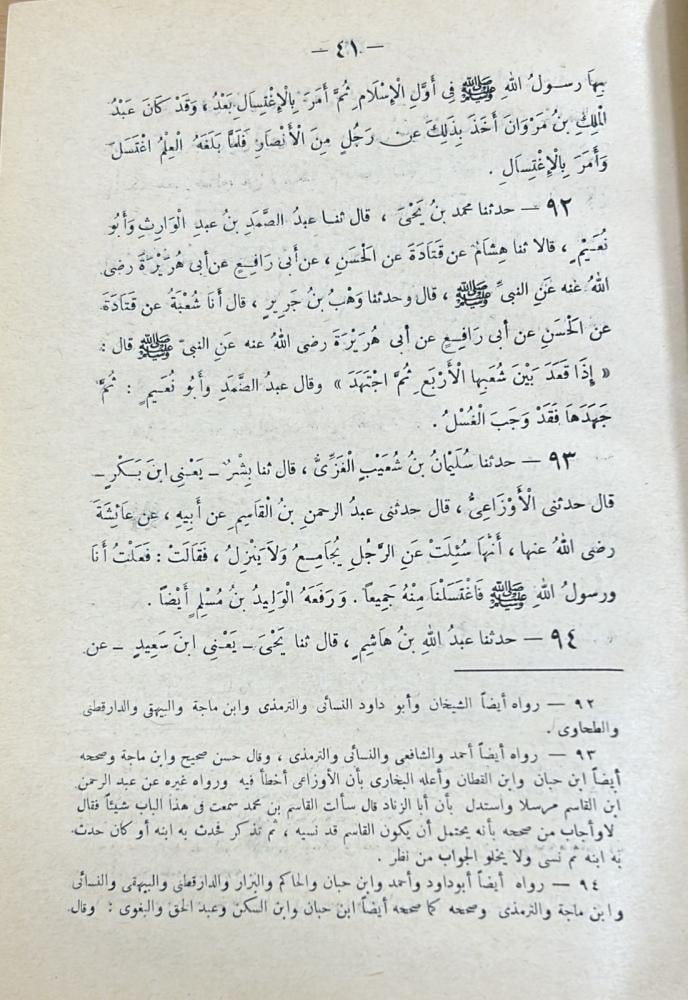 — ٤١ —
بِهَا رسولُ اللهِ ﷺ فِى أَوَّلِ الْإِسْلَامِ ثُمَّ أَمَرَ بِالْإِغْتِسَالِ بَعْدُ ، وَقَدْ كَانَ عَبْدُ
الْمَلِكِ بنُ مَرْوَانَ أَخَذَ بِذَلِكَ عن رَجُلٍ مِنَ الْأَنْصَارِ فَلَمَّا بَلَغَهُ الْعِلْمُ اغْتَسَلَ
وَأَمَرَ بِالْإِغْتِسَالِ .
٩٢ — حدثنا محمد بنُ يَحْيَى ، قال ثنا عبدُ الصَّمَدِ بنُ عبدِ الْوَارِثِ وَأَبُو
نُعَيْمٍ ، قالا ثنا هِشَامٌ عن قَتَادَةَ عن الْحَسَنِ ، عن أبى رَافِعٍ عن أبى هُرَيْرَةَ رضى
اللهُ عنه عَنِ النبىِّ ﷺ ، قال وحدثنا وَهْبُ بنُ جَرِيرٍ ، قال أَنَا شُعْبَةُ عن قَتَادَةَ
عن الْحَسَنِ عن أبى رَافِعٍ عن أبى هُرَيْرَةَ رضى اللهُ عنه عَنِ النبىِّ ﷺ قال :
« إِذَا قَعَدَ بَيْنَ شُعَبِهَا الْأَرْبَعِ ثُمَّ اجْتَهَدَ » وقال عبدُ الصَّمَدِ وأَبُو نُعَيمٍ : ثُمَّ
جَهَدَهَا فَقَدْ وَجَبَ الْغُسْلُ .
٩٣ — حدثنا سُلَيْمَانُ بنُ شُعَيْبٍ الْغَزِّىُّ ، قال ثنا بِشْرٌ — يَعْنِى ابنَ بَكْرٍ —
قال حدثنى الْأَوْزَاعِىُّ ، قال حدثنى عبدُ الرحمنِ بنُ الْقَاسِمِ عن أَبِيهِ ، عن عَائِشَةَ
رضى اللهُ عنها ، أَنَّهَا سُئِلَتْ عَنِ الرَّجُلِ يُجَامِعُ وَلَا يَنْزِلُ ، فَقَالَتْ : فَعَلْتُ أَنَا
ورسولُ اللهِ ﷺ فَاغْتَسَلْنَا مِنْهُ جَمِيعاً . وَرَفَعَهُ الْوَلِيدُ بنُ مُسْلِمٍ أَيْضاً .
٩٤ — حدثنا عبدُ اللهِ بنُ هَاشِمٍ ، قال ثنا يَحْيَى — يَعْنِى ابنَ سَعِيدٍ — عن
٩٢ — رواه أيضاً الشيخان وأبو داود النسائى والترمذى وابن ماجة والبيهقى والدارقطنى
والطحاوى .
٩٣ — رواه أيضاً أحمد والشافعى والنسائى والترمذى ، وقال حسن صحيح وابن ماجة وصححه
أيضاً ابن حبان وابن القطان وأعله البخارى بأن الأوزاعى أخطأ فيه ورواه غيره عن عبد الرحمن
ابن القاسم مرسلا واستدل بأن أبا الزناد قال سألت القاسم بن محمد سمعت فى هذا الباب شيئاً فقال
لا وأجاب من صححه بأنه يحتمل أن يكون القاسم قد نسيه ، ثم تذكر فحدث به ابنه أو كان حدث
به ابنه ثم نسى ولا يخلو الجواب من نظر .
٩٤ — رواه أيضاً أبوداود وأحمد وابن حبان والحاكم والبزار والدارقطنى والبيهقى والنسائى
وابن ماجة والترمذى وصححه كما صححه أيضاً ابن حبان وابن السكن وعبد الحق والبغوى : وقال